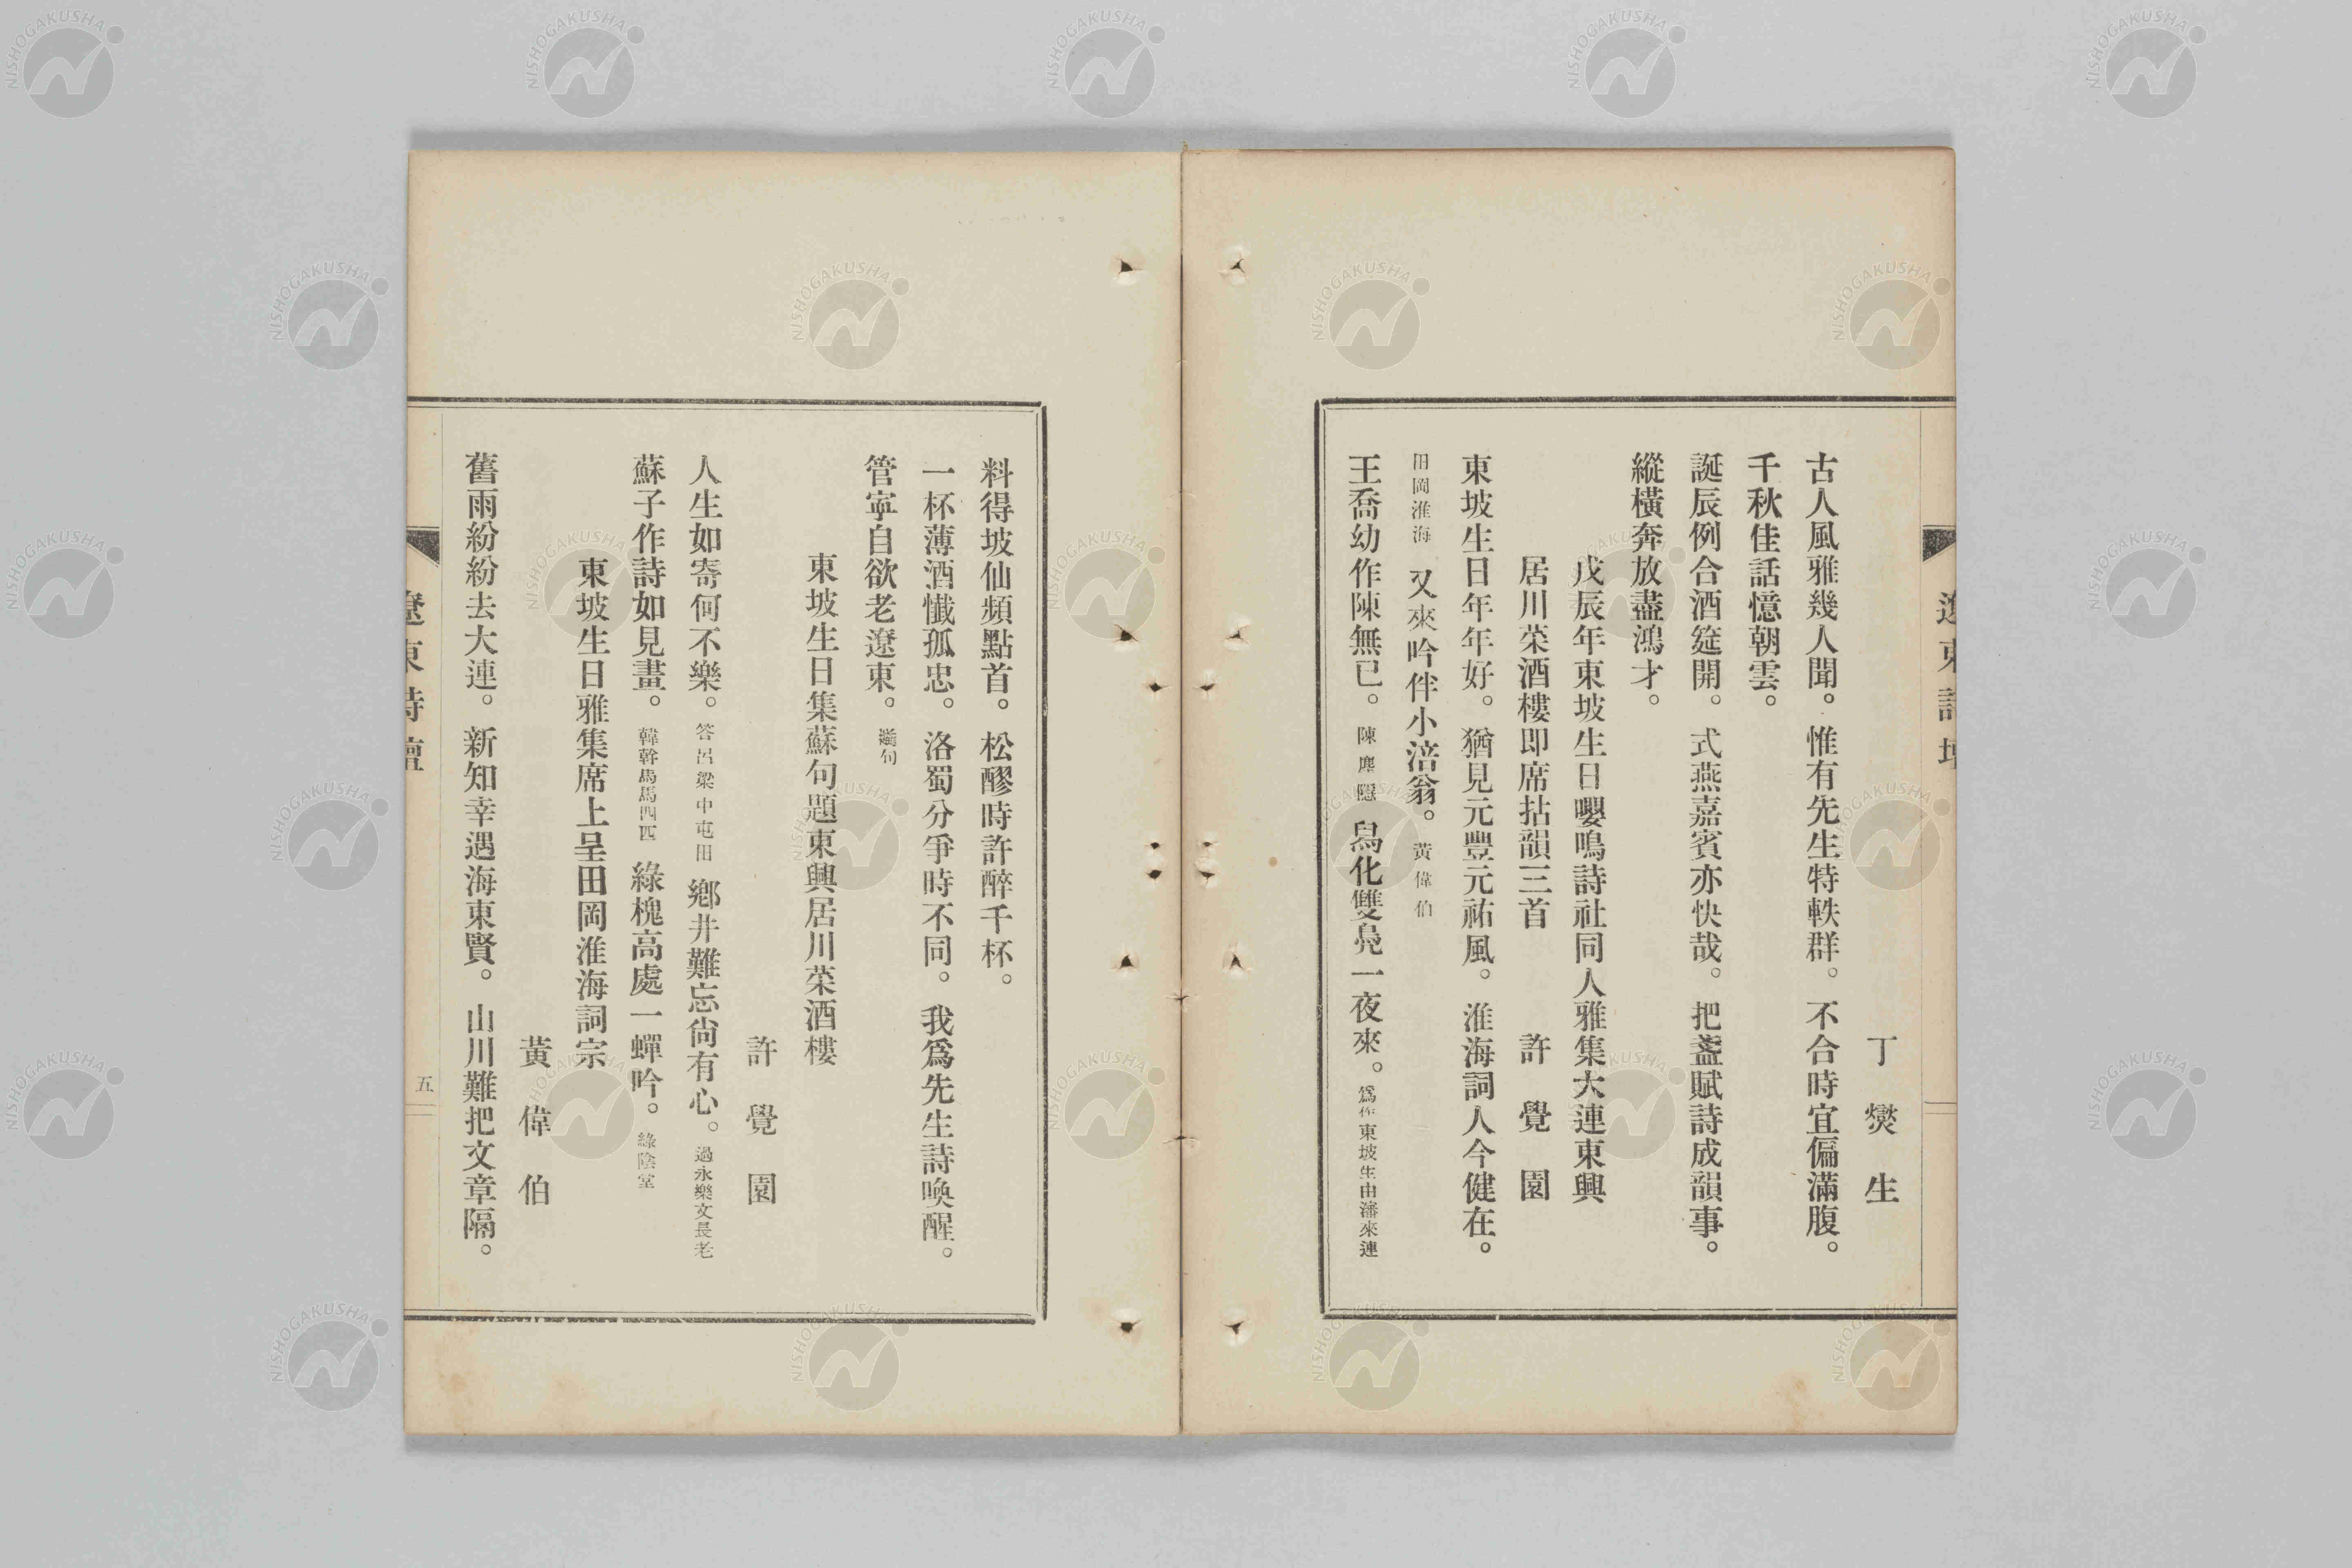 丁爕生
古人風雅幾人聞。惟有先生特軼群。不合時宜偏滿腹。
千秋佳話憶朝雲。
誕辰例合酒筵開。式燕嘉賓亦快哉。把盞賦詩成韻事。
縱橫奔放盡鴻才。
戊辰年東坡生日嚶鳴詩社同人雅集大連東興
居川菜酒樓即席拈韻三首 許覺園
東坡生日年年好。猶見元豐元祐風。淮海詞人今健在。
田岡淮海 又來吟伴小涪翁。黃偉伯
王喬幼作陳無已。陳塵隱 舄化雙鳧一夜來。爲作東坡生由瀋來連
遼東詩壇
料得坡仙頻點首。松醪時許醉千杯。
一杯薄酒懺孤忠。洛蜀分爭時不同。我爲先生詩喚醒。
管寧自欲老遼東。蘇句
東坡生日集蘇句題東興居川菜酒樓
許覺園
人生如寄何不樂。答呂梁中屯田 鄉井難忘尙有心。過永樂文長老
蘇子作詩如見畫。韓幹馬 綠槐高處一蟬吟。綠陰堂
東坡生日雅集席上呈田岡淮海詞宗
黃偉伯
舊雨紛紛去大連。新知幸遇海東賢。山川難把文章隔。
遼東詩壇
五
NISHOGAKUSHA